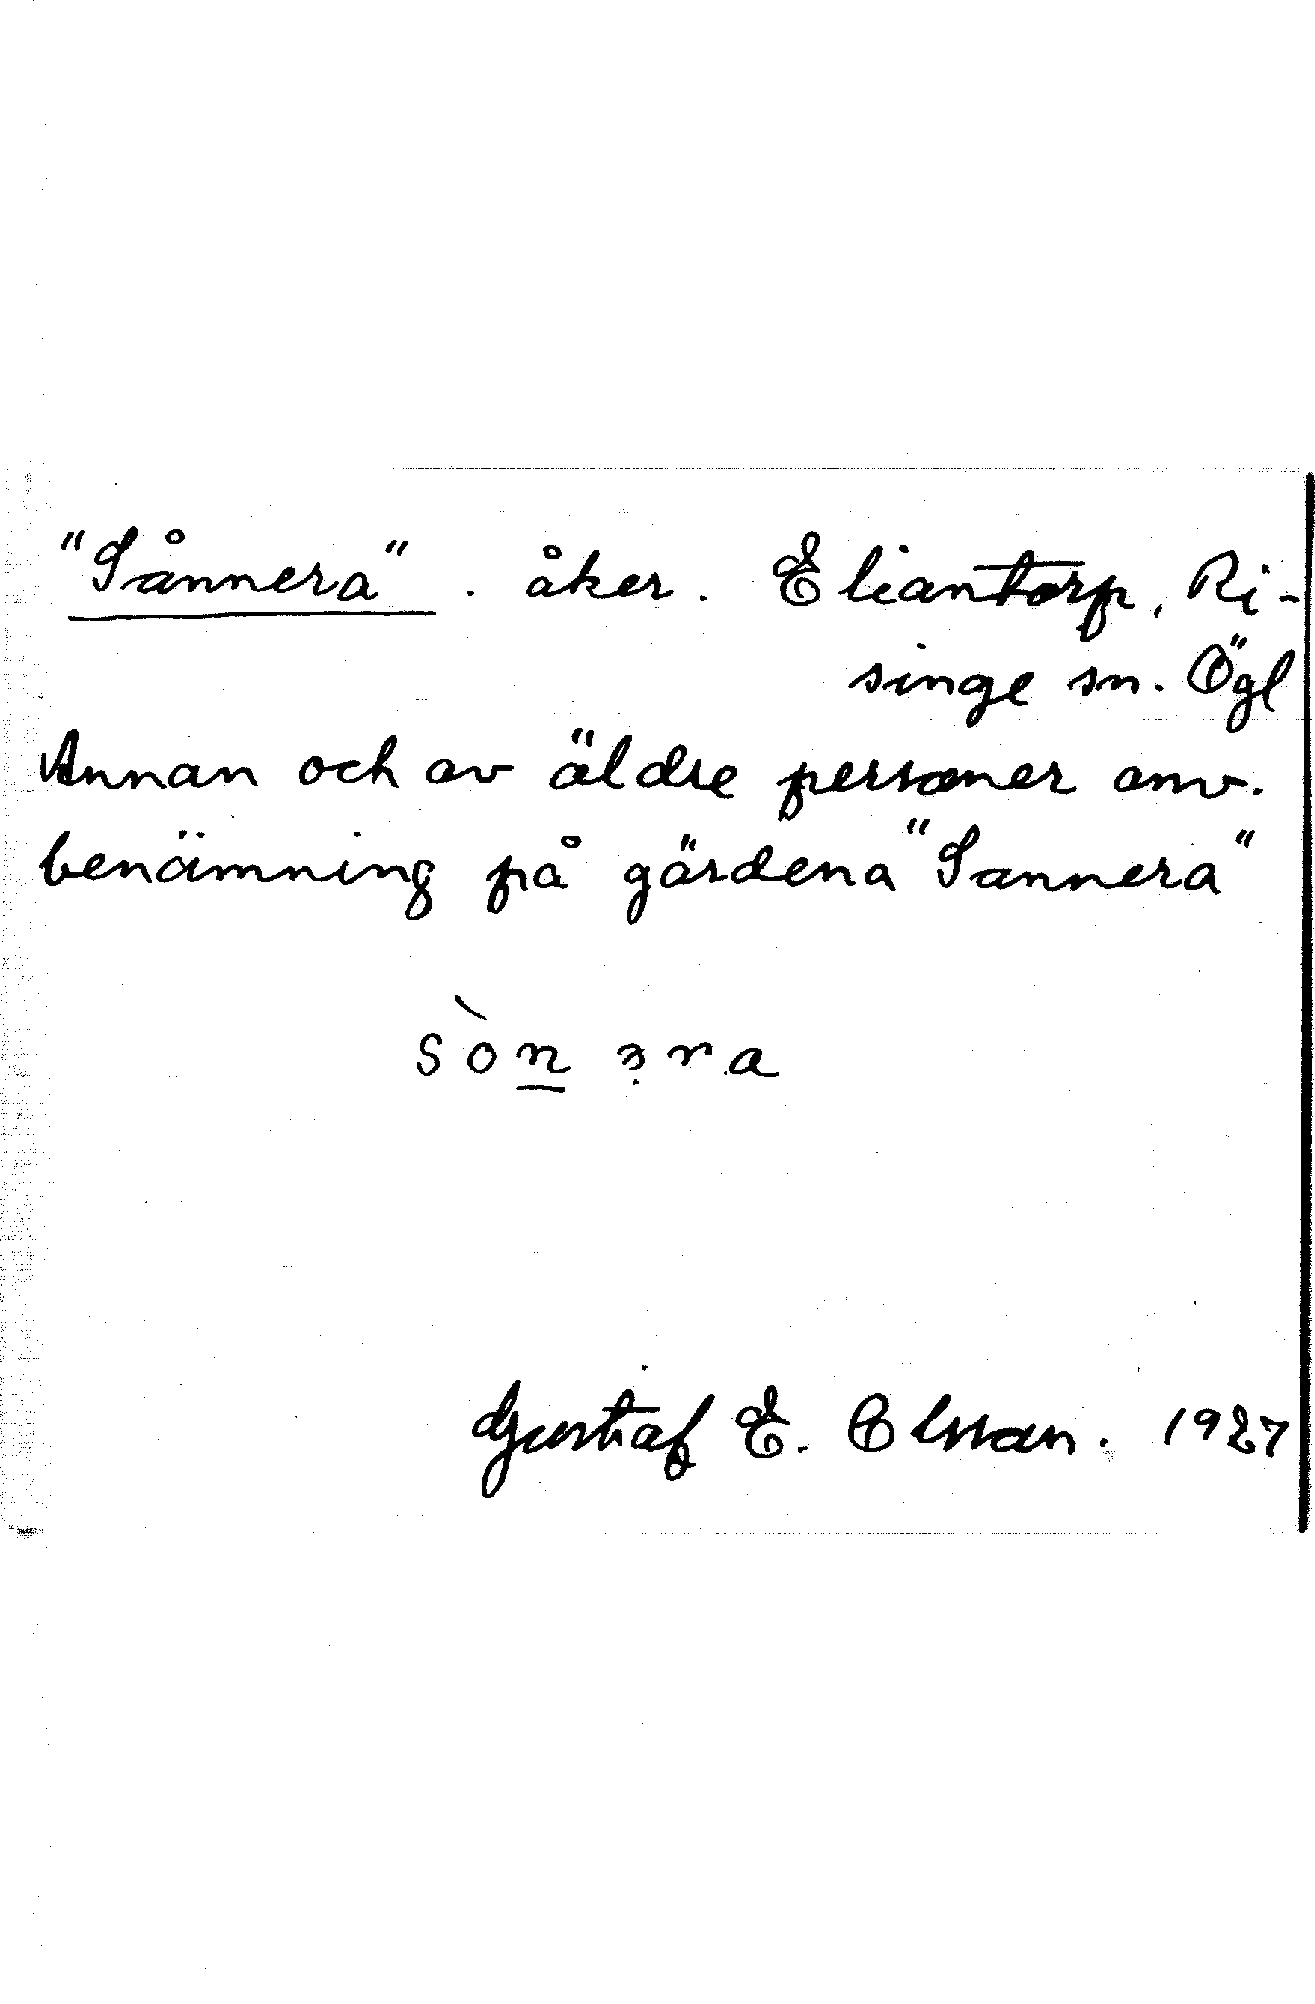 "Sånnera". åker. Eliantorp, Ri-
singe sn. Ögl
Annan och av äldre personer anv.
benämning på gärdena "Sannera"
sòn̲ ɜ̣ra
Gustaf E. Olsson. 1927